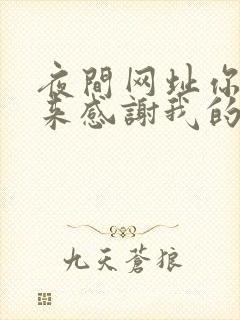 夜間网址你
来感謝我的
九天蒼狼